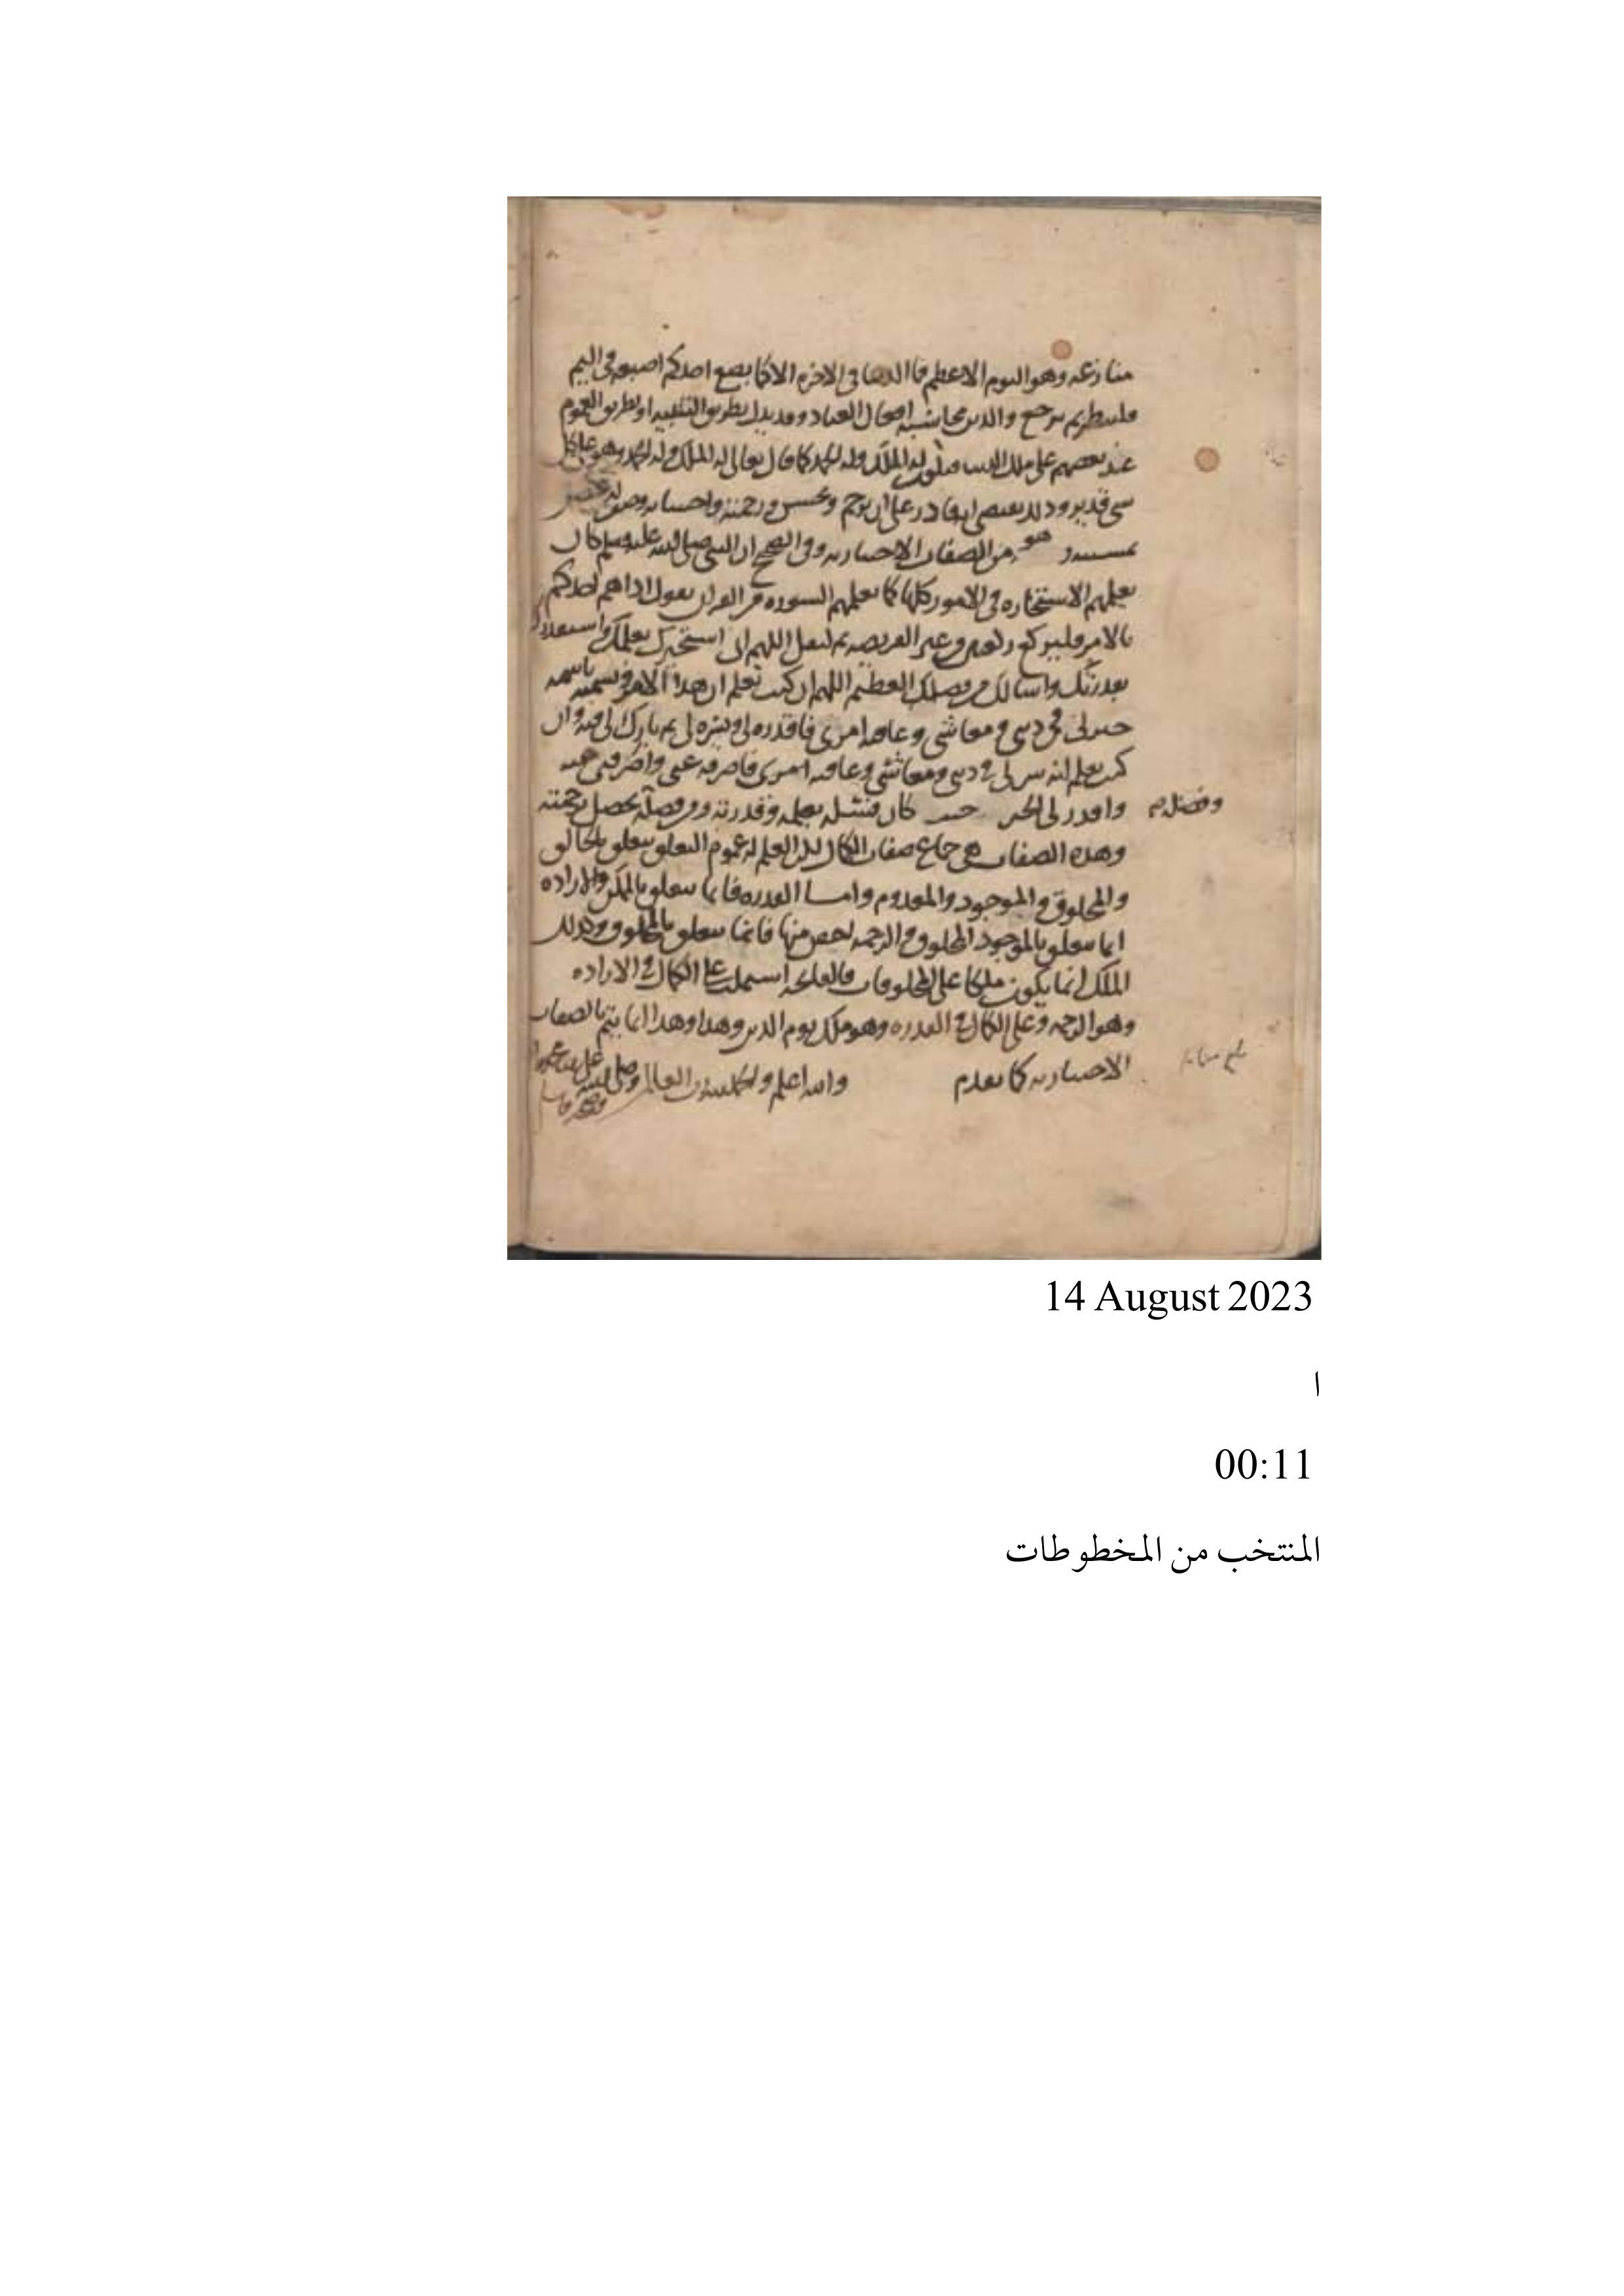 منازعه وهو اليوم الاعظم فما الدنيا في الاخرة الا كما يضع احدكم اصبعه في اليم
فلينظر بم ترجع والدين محاسبه افعال العباد وقد يدل بطريق التنبيه او بطريق العموم
عند بعضهم على ملك الدنيا فيكون له الملك وله الحمد كما قال تعالى له الملك وله الحمد وهو على كل
شي قدير وذلك يقتضي انه قادر على ان يرحم ورحمته واحسانه وصف له
هو من الصفات الاختياريه وفي الصحيح ان النبي صلى الله عليه وسلم كان
يعلمهم الاستخاره في الامور كلها كما يعلمهم السوره من القران يقول اذا هم احدكم
بالامر فليركع ركعتين من غير الفريضه ثم ليقل اللهم اني استخيرك بعلمك واستقدرك
بقدرتك واسالك من فضلك العظيم اللهم ان كنت تعلم ان هذا الامر ويسميه باسمه
خير لي في ديني ومعاشي وعاقبه امري فاقدره لي ويسره لي ثم بارك لي فيه وان
كنت تعلم انه شر لي في ديني ومعاشي وعاقبه امري فاصرفه عني واصرفني عنه
واقدر لي الخير حيث كان فنسئله بعلمه وقدرته ومن فضله يحصل برحمته
وفضله
وهذه الصفات هي جماع صفات الكمال لكن العلم له عموم التعلق يتعلق بالخالق
والمخلوق والموجود والمعدوم واما القدره فانما تتعلق بالممكن والاراده
انما تتعلق بالموجود المخلوق والرحمه اخص منها فانما تتعلق بالمخلوق وكذلك
الملك انما يكون ملكا على المخلوقات فالفاتحه اشتملت على الكمال في الاراده
وهو الرحمه وعلى الكمال في القدره وهو ملك يوم الدين وهذا وهذا انما يتم بالصفات
الاختياريه كما تقدم والله اعلم والحمد لله رب العالمين وصلى الله على
14 August 2023
ا
00:11
المنتخب من المخطوطات